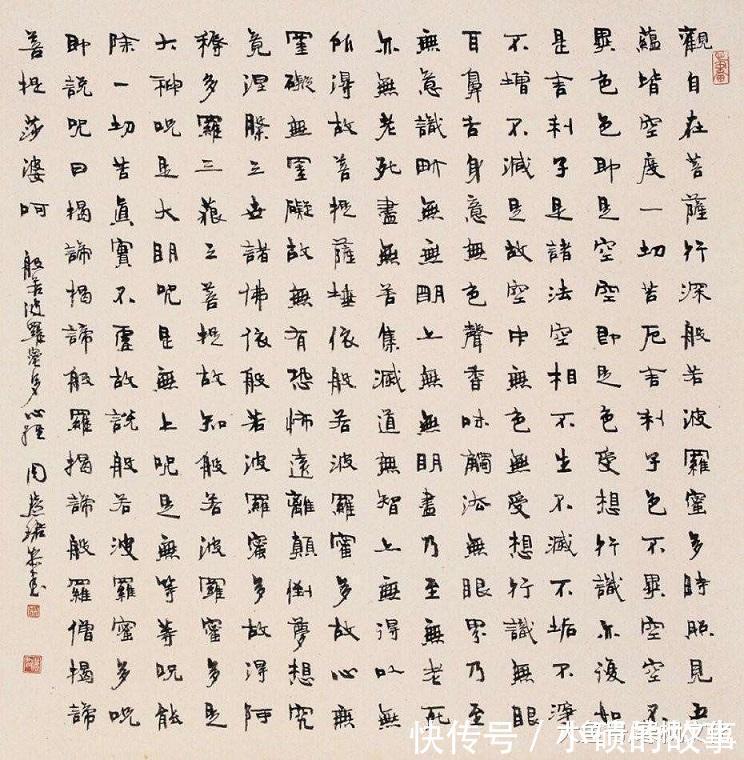 觀自在菩薩行深般若波羅蜜多時照見五
蘊皆空度一切苦厄舍利子色不異空空不
異色色即是空空即是色受想行識亦復如
是舍利子是諸法空相不生不滅不垢不淨
不增不減是故空中無色無受想行識無眼
耳鼻舌身意無色聲香味觸法無眼界乃至
無意識界無無明上無無明盡乃至無老死
亦無老死盡無苦集滅道無智上無得以
所得故菩提薩埵依般若波羅蜜多故心無
罣礙無罣礙故無有恐怖遠離顛倒夢想究
竟涅槃三世諸佛依般若波羅蜜多故得阿
耨多羅三藐三菩提故知般若波羅蜜多是
大神呪是大明呪是無上呪是無等等呪能
除一切苦真實不虛故說般若波羅蜜多呪
即說呪曰揭諦揭諦般羅揭諦般羅僧揭諦
菩提莎婆呵 般若波羅蜜多心經 周慧珺恭書
快传号 / 水硕的故事